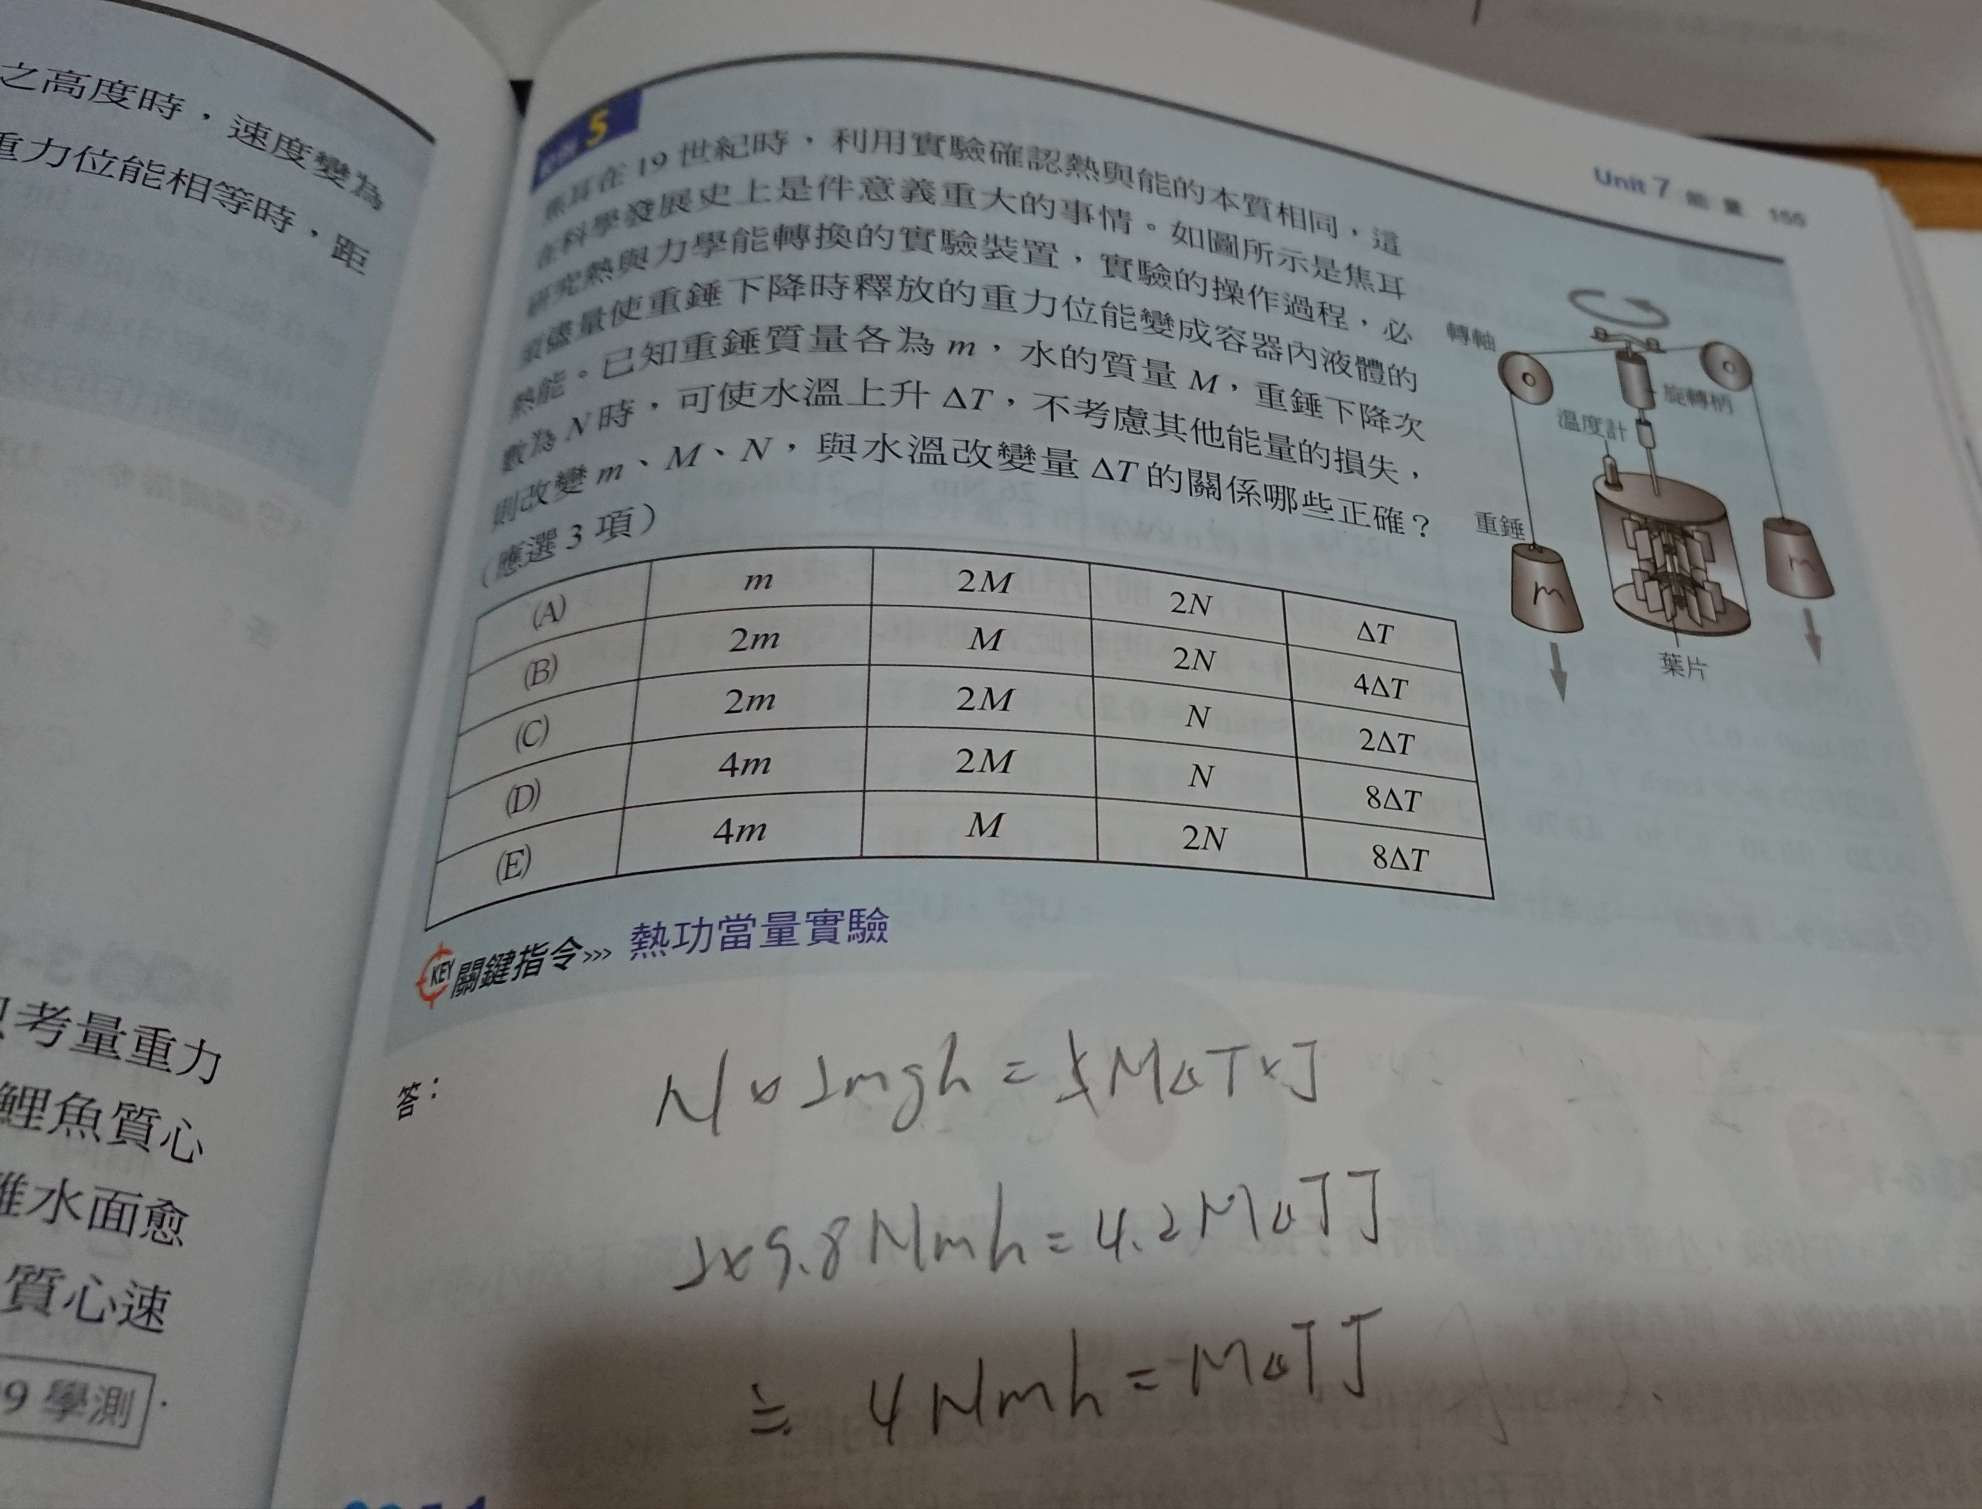 之高度時，速度變為
重力位能相等時，距
考量重力
鯉魚質心
離水面愈
質心速
9 學測
Unit 7 能 量 155
5
焦耳在 19 世紀時，利用實驗確認熱與能的本質相同，這
在科學發展史上是件意義重大的事情。如圖所示是焦耳
研究熱與力學能轉換的實驗裝置，實驗的操作過程，必
須儘量使重錘下降時釋放的重力位能變成容器內液體的
熱能。已知重錘質量各為 m，水的質量 M，重錘下降次
數為 N 時，可使水溫上升 ΔT，不考慮其他能量的損失，
則改變 m、M、N，與水溫改變量 ΔT 的關係哪些正確？
（應選 3 項）
轉軸
旋轉柄
溫度計
重錘
m
m
葉片
(A) m 2M 2N ΔT
(B) 2m M 2N 4ΔT
(C) 2m 2M N 2ΔT
(D) 4m 2M N 8ΔT
(E) 4m M 2N 8ΔT
KEY 關鍵指令››› 熱功當量實驗
答：
N × 2mgh = MΔT×J
2×9.8Nmh = 4.2MΔTJ
≒ 4Nmh = MΔTJ